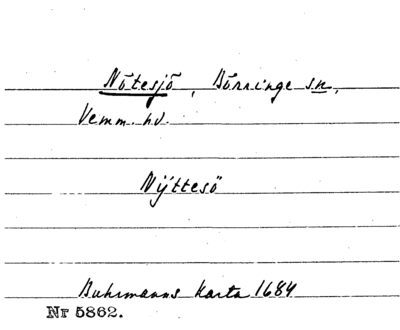 Nötesjö, Börringe sn,
Vemm. hd.
Nÿttesö
Buhrmanns karta 1684
Nr 5862.